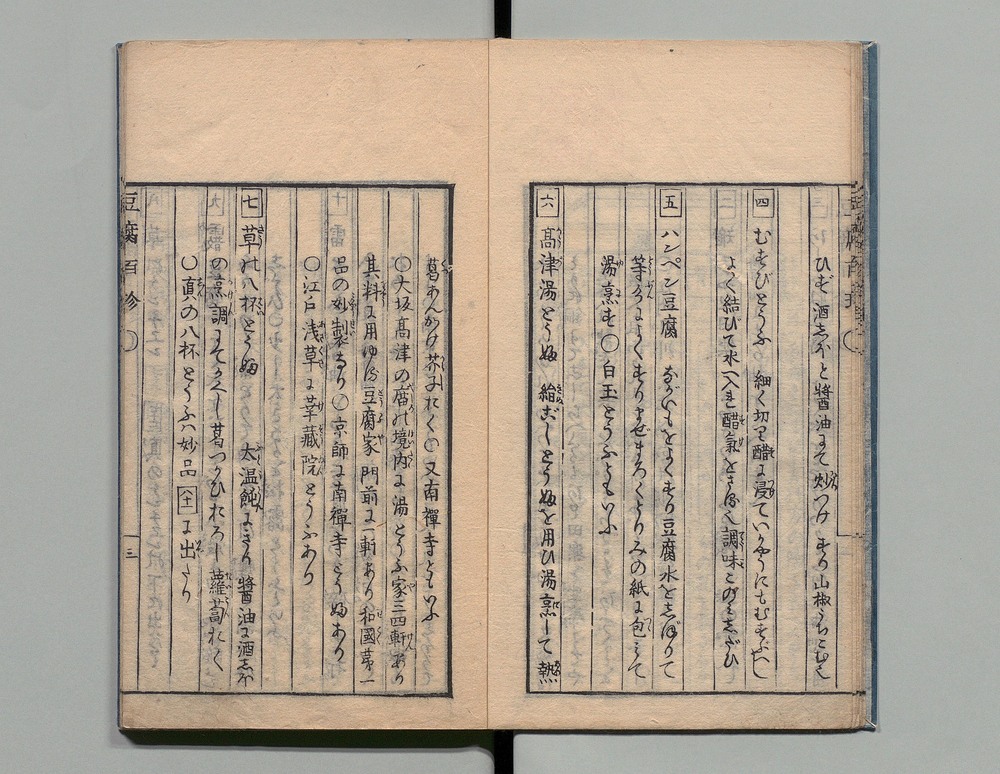 ひたす 酒しほと醤油にて炒つけ すり山椒うちこむ也
四 むすびとうふ 細く切り醋に浸ていかやうにもむすぶべし
よく結びて水へ入れ醋氣をさる也 調味このみしだひ
五 ハンペン豆腐 ながいもをよくすり豆腐水をしぼりて
等分によくすりまぜまろくとりみの紙に包ミて
湯烹す ○白玉とうふともいふ
六 高津湯とうふ 絹ごしとうふを用ひ湯烹して 熱
葛あんかけ芥子おく ○又南禪寺ともいふ
○大坂高津の廟の境内に湯とうふ家三四軒あり
其料に用ゆる豆腐家門前に一軒あり和國第一
品の妙製なり ○京師に南禪寺とうふあり
○江戸浅草に華藏院とうふあり
七 草の八杯とうふ 太温飩にきり醤油に酒しほ
の烹調にてかくし葛つかひおろし蘿蔔おく
○真の八杯とうふハ妙品 八十一 に出たり
豆腐百珍 ○ 三